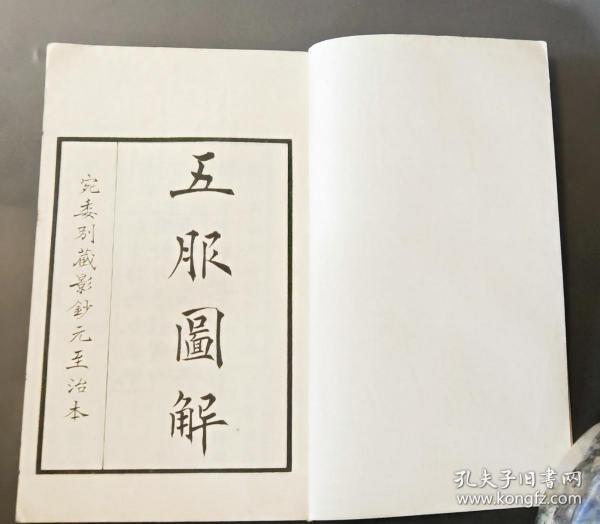 五服圖解
宛委別藏影鈔元至治本
孔夫子旧书网
www.kongfz.com